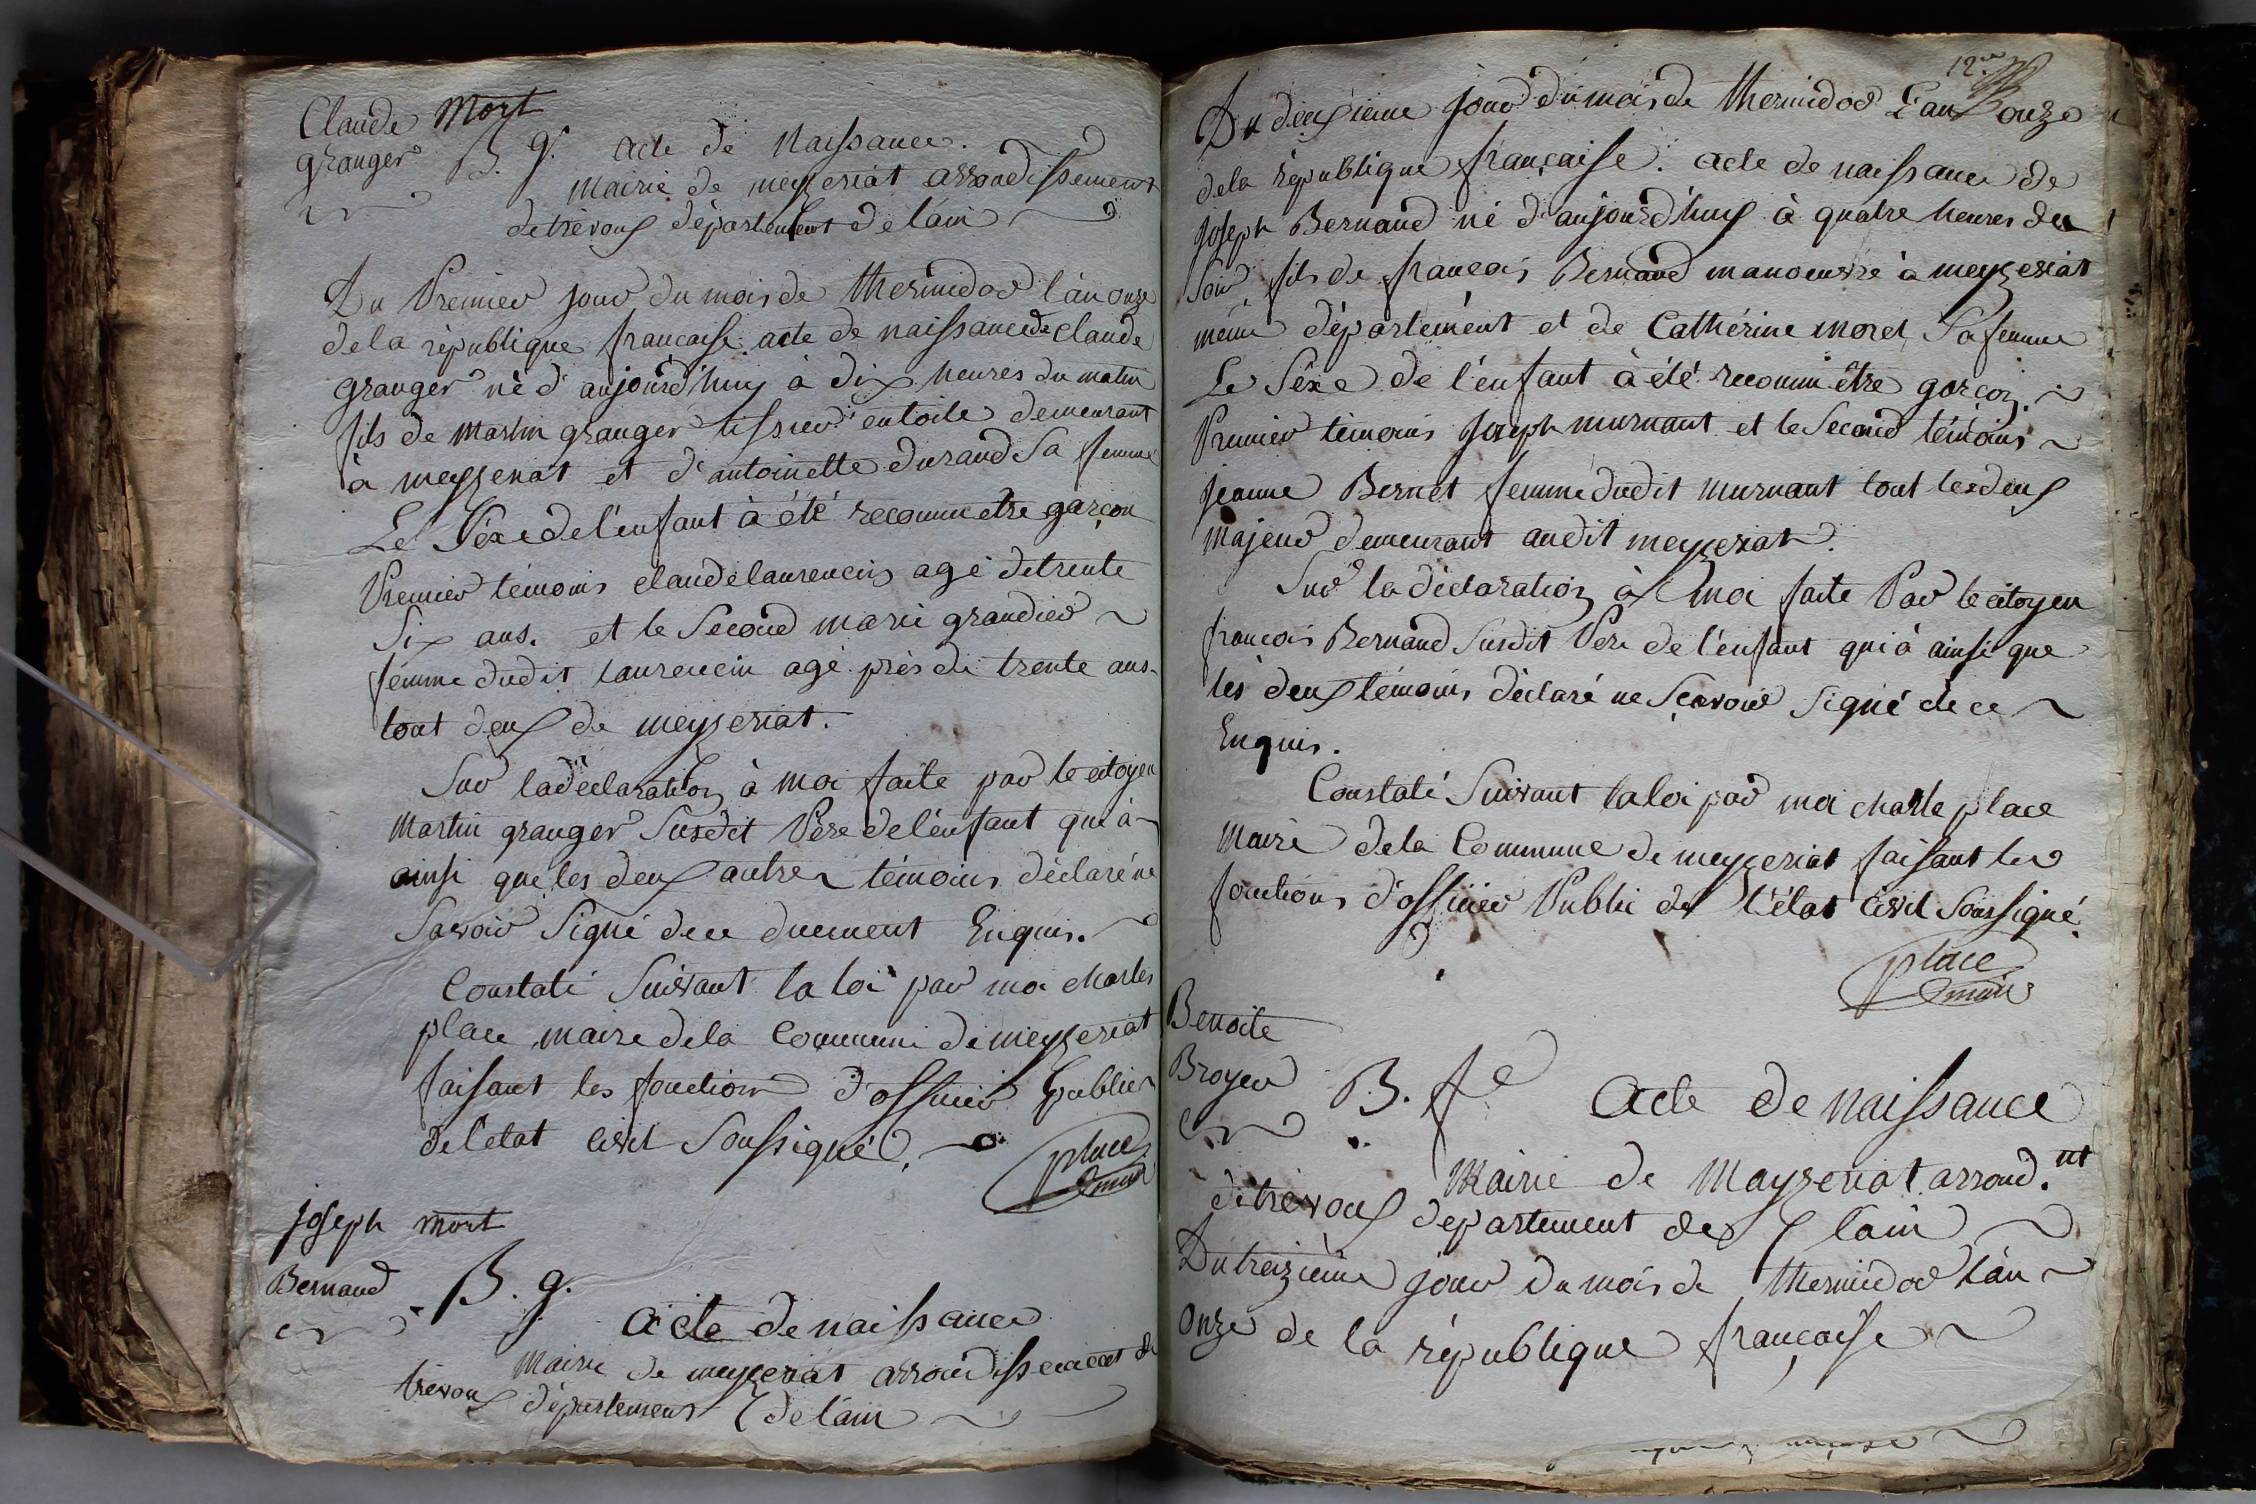 Claude mort
granger B. g. acte de Naissance.
mairie de meyzeriat arrondissement
de trevoux département de l'ain
Du Premier jour du mois de thermidor l'an onze
de la république francaise acte de naissance de Claude
granger né d'aujourd'huy à dix heures du matin
fils de martin granger tissier en toile demeurant
à meyzeriat et d'antoinette durand sa femme
Le séxe de l'enfant à été reconnu etre garçon
Premier témoins claude laurencin agé de trente
Six ans. et le Second marie grandier
femme dudit laurencin agé près de trente ans.
tout deux de meyzeriat.
Sur la déclaration à moi faite par le citoyen
martin granger Susdit Pére de l'énfant qui à
ainsi que les deux autres témoins déclaré ne
Savoir Signé de ce duement Enquis.
Constaté Suivant la loi par moi charles
place maire de la Commune de meyzeriat
faisant les fonction d'officier public
de l'état civil Soussigné.
place
maire
joseph mort
Bernand B. g.
acte de naissance
mairie de meyzeriat arrondissement de
trevoux département de l'ain
12.me
Du deuxieme jour du mois de thermidor l'an onze
de la république française. acte de naissance de
joseph Bernand né d'aujourd'huy à quatre heures du
soir, fils de francois Bernand manoeuvre à meyzeriat
méme département et de Cathérine morel Sa femme
Le Séxe de l'énfant à été reconnu être garçon.
Premier témoins joseph murnant et le Second témoins
jeanne Bernet femme dudit murnant tout les deux
majeur demeurant audit meyzeriat.
Sur la déclaration à moi faite Par le citoyen
francois Bernand Susdit Pere de l'énfant qui à ainsi que
lés deux témoins déclaré ne Sçavoir signé de ce
Enquis.
Constaté Suivant la loi par moi charle place
maire de la Commune de meyzeriat faisant les
fonctions d'officier Public de l'état civil Soussigné.
place
maire
Benoite
Broyer B. fe acte de naissance
Mairie de Mayzeriat arrond.nt
de trevoux departement de l'ain
Du treizième jour du mois de thermidor l'an
onze de la république française